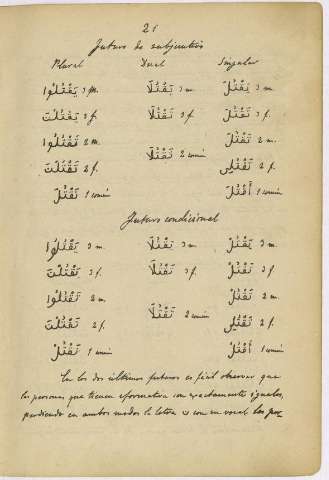 21
Futuro de subjuntivo
Plural Dual Singular
يَقْتُلُوا 3 m. يَقْتُلَا 3 m. يَقْتُلَ 3 m.
يَقْتُلْنَ 3 f. تَقْتُلَا 3 f. تَقْتُلَ 3 f.
تَقْتُلُوا 2 m. تَقْتُلَا 2 comun تَقْتُلَ 2 m.
تَقْتُلْنَ 2 f. تَقْتُلِي 2 f.
نَقْتُلَ 1 comun أَقْتُلَ 1 comun
Futuro condicional
يَقْتُلُوا 3 m. يَقْتُلَا 3 m. يَقْتُلْ 3 m.
يَقْتُلْنَ 3 f. تَقْتُلَا 3 f. تَقْتُلْ 3 f.
تَقْتُلُوا 2 m. تَقْتُلَا 2 comun تَقْتُلْ 2 m.
تَقْتُلْنَ 2 f. تَقْتُلِي 2 f.
نَقْتُلْ 1 comun أَقْتُلْ 1 comun
En los dos últimos futuros es fácil observar que
las personas que tienen aformativa son exactamente iguales,
perdiendo en ambos modos la letra ن con su vocal las per